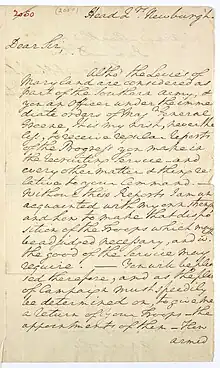 2060
Head Qrs Newburgh
Dear Sir,
Altho' the Levies of
Maryland are considered as
part of the Southern Army, &
you an Officer under the imme
diate orders of Maj. General
Greene, it is my wish, neverthe
less, to receive regular Reports
of the Progress you make in
the recruiting Service, and
every other matter & thing re
lative to your Command
Without these Reports I am un
acquainted with my own strength
and how to make that dispo
sition of the Troops which may
be adjudged necessary, and
the good of the Service may
require. You will be plea
sed therefore, and as the plan
of Campaign must speedily
be determined on, to give me
a return of your Troops - the
appointments of them - then
armed